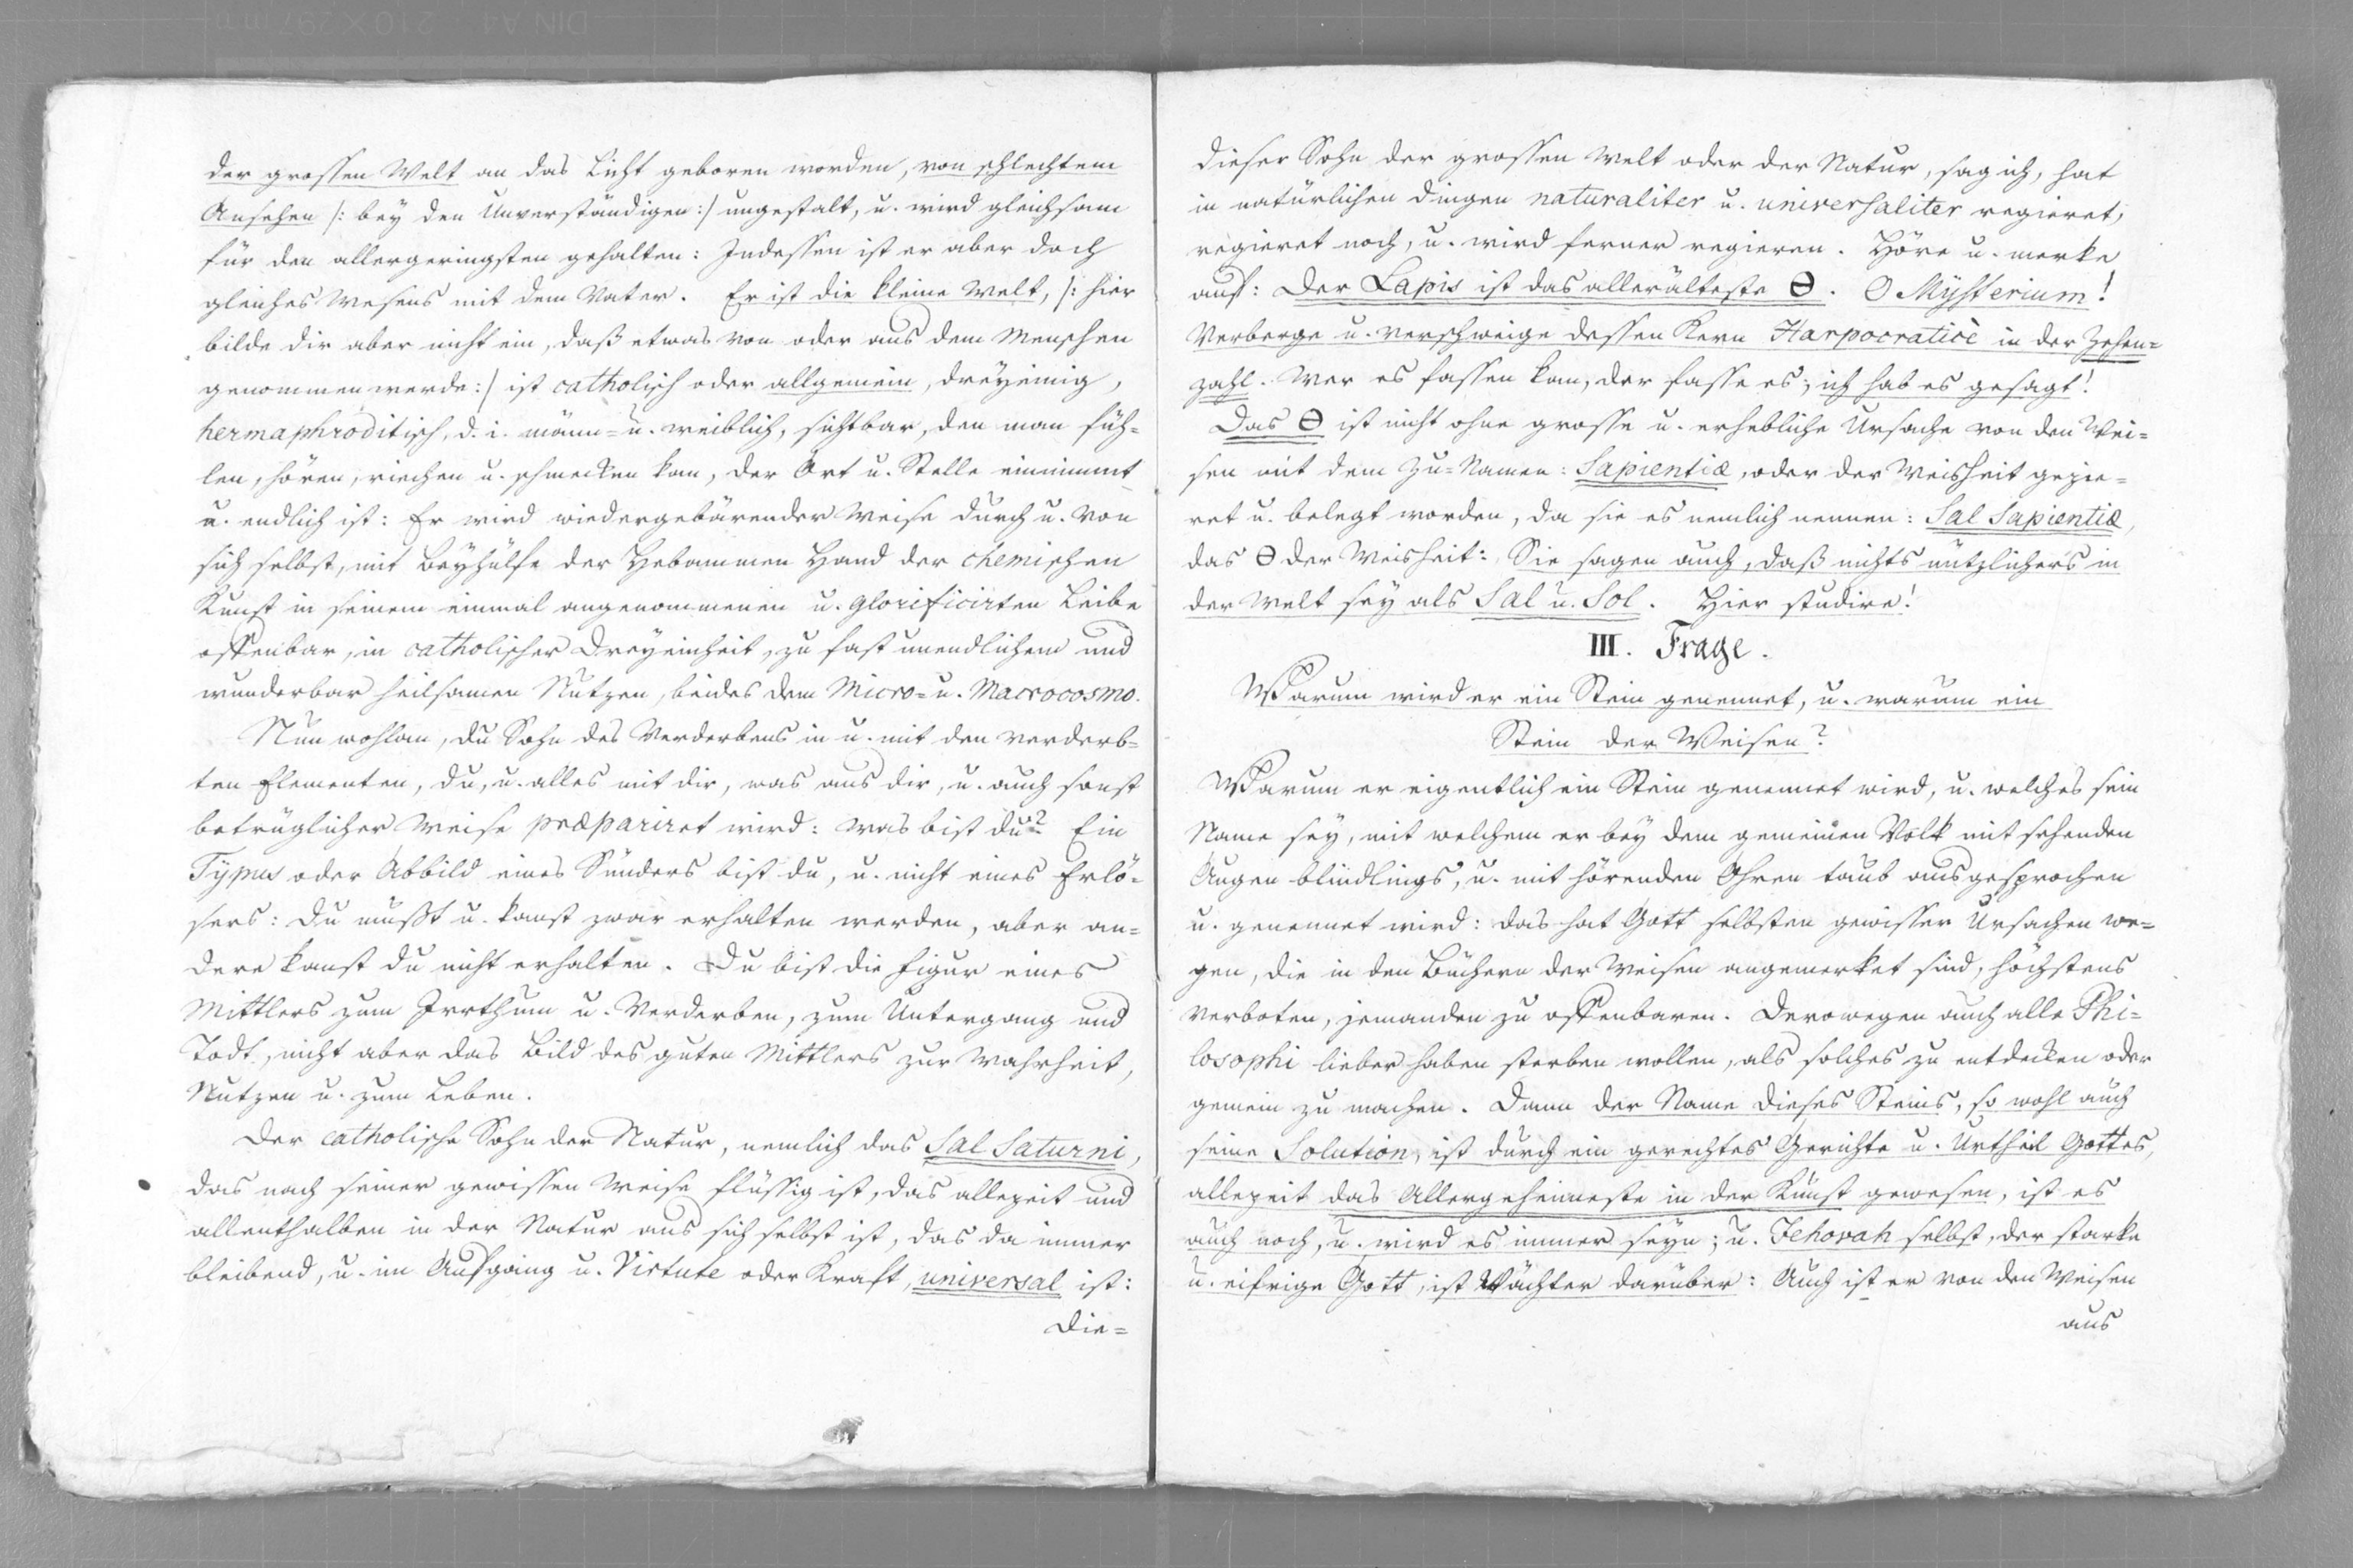 der grossen Welt an das Licht geboren worden, von schlechtem
Ansehen /: bey den Unverständigen :/ ungestalt, u. wird gleichsam
für den allergeringsten gehalten: Indessen ist er aber doch
gleiches Wesens mit dem Vater. Er ist die kleine Welt, /: hier
bilde dir aber nicht ein, daß etwas von oder aus dem Menschen
genommen werde :/ ist catholisch oder allgemein, dreyeinig,
hermaphroditisch, d. i. männ= u. weiblich, sichtbar, den man füh=
len, hören, riechen u. schmecken kan, der Ort u. Stelle einnimmt
u. endlich ist: Er wird wiedergebärender Weise durch u. von
sich selbst, mit Beyhülfe der Hebammen Hand der chemischen
Kunst in seinem einmal angenommenen u. glorificirten Leibe
offenbar, in catholischer Dreyeinheit, zu fast unendlichem und
wunderbar heilsamen Nutzen, beides dem Micro= u. Macrocosmo.
Nun wohlan, du Sohn des Verderbens in u. mit den verderb=
ten Elementen, du, u. alles mit dir, was aus dir, u. auch sonst
betrüglicher Weise præpariret wird: was bist du? Ein
Typus oder Abbild eines Sünders bist du, u. nicht eines Erlö=
sers: du mußt u. kanst zwar erhalten werden, aber an=
dere kanst du nicht erhalten. Du bist die Figur eines
Mittlers zum Irrthum u. Verderben, zum Untergang und
Todt, nicht aber das Bild des guten Mittlers zur Wahrheit,
Nutzen u. zum Leben.
Der catholische Sohn der Natur, nemlich das Sal Saturni,
das nach seiner gewissen Weise flüssig ist, das allezeit und
allenthalben in der Natur aus sich selbst ist, das da immer
bleibend, u. im Aufgang u. Virtute oder Kraft, universal ist:
Die=
dieser Sohn der grossen Welt oder der Natur, sag ich, hat
in natürlichen Dingen naturaliter u. universaliter regieret,
regieret noch, u. wird ferner regieren. Höre u. merke
auf: Der Lapis ist das allerälteste Θ. O Mysterium!
Verberge u. verschweige dessen Kern Harpocraticè in der Zehen=
zahl. Wer es fassen kan, der fasse es; ich hab es gesagt!
Das Θ ist nicht ohne grosse u. erhebliche Ursache von den Wei=
sen mit dem Zu=Namen: Sapientiæ, oder der Weisheit gezie=
ret u. belegt worden, da sie es nemlich nennen: Sal Sapientiæ,
das Θ der Weisheit: Sie sagen auch, daß nichts nützlichers in
der Welt sey als Sal u. Sol. Hier studire!
III. Frage.
Warum wird er ein Stein genennet, u. warum ein
Stein der Weisen?
Warum er eigentlich ein Stein genennet wird, u. welches sein
Name sey, mit welchem er bey dem gemeinen Volk mit sehenden
Augen blindlings, u. mit hörenden Ohren taub ausgesprochen
u. genennet wird: das hat Gott selbsten gewisser Ursachen we=
gen, die in den Büchern der Weisen angemerket sind, höchstens
verboten, jemanden zu offenbaren. Derowegen auch alle Phi=
losophi lieber haben sterben wollen, als solches zu entdecken oder
gemein zu machen. Dann der Name dieses Steins, so wohl auch
seine Solution, ist durch ein gerechtes Gerichte u. Urtheil Gottes,
allezeit das Allergeheimeste in der Kunst gewesen, ist es
auch noch, u. wird es immer seyn; u. Jehovah selbst, der starke
u. eifrige Gott, ist Wächter darüber: Auch ist er von den Weisen
aus